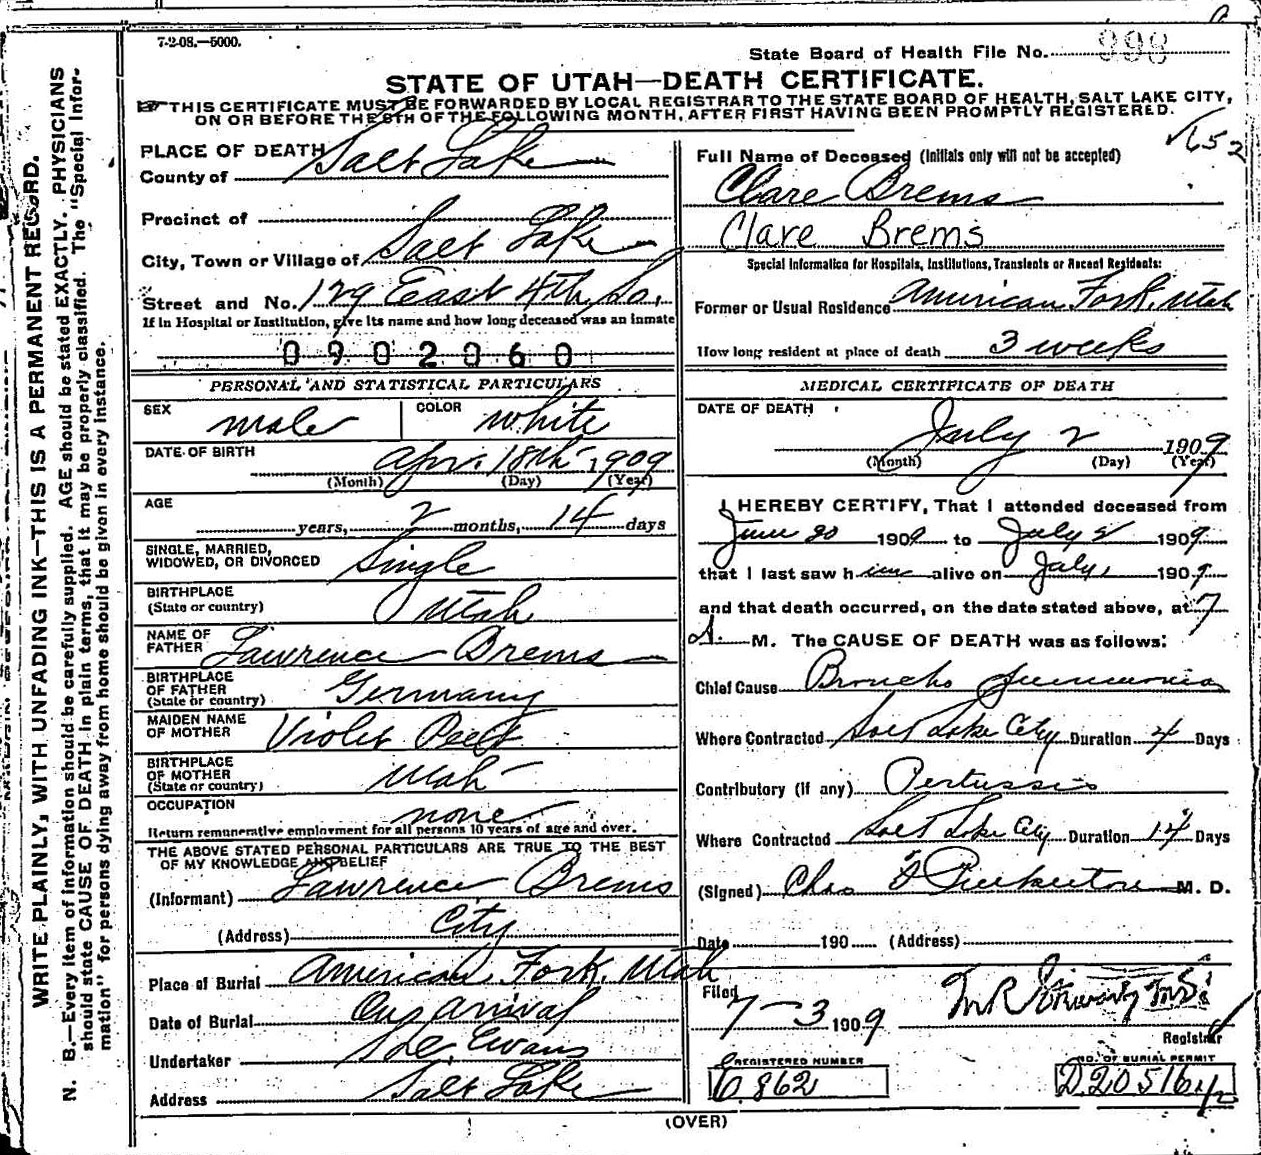 7-2-08.—5000.
State Board of Health File No. 998
STATE OF UTAH—DEATH CERTIFICATE.
THIS CERTIFICATE MUST BE FORWARDED BY LOCAL REGISTRAR TO THE STATE BOARD OF HEALTH, SALT LAKE CITY,
ON OR BEFORE THE 5TH OF THE FOLLOWING MONTH, AFTER FIRST HAVING BEEN PROMPTLY REGISTERED.
652
WRITE PLAINLY, WITH UNFADING INK—THIS IS A PERMANENT RECORD.
N. B.—Every item of information should be carefully supplied. AGE should be stated EXACTLY. PHYSICIANS
should state CAUSE OF DEATH in plain terms, that it may be properly classified. The "Special Infor-
mation" for persons dying away from home should be given in every instance.
PLACE OF DEATH
County of Salt Lake
Precinct of
City, Town or Village of Salt Lake
Street and No. 129 East 4th So.
If in Hospital or Institution, give its name and how long deceased was an inmate
0902060
PERSONAL AND STATISTICAL PARTICULARS
SEX male COLOR white
DATE OF BIRTH Apr. 18th 1909
(Month) (Day) (Year)
AGE years, 2 months, 14 days
SINGLE, MARRIED,
WIDOWED, OR DIVORCED Single
BIRTHPLACE
(State or country) Utah
NAME OF
FATHER Lawrence Brems
BIRTHPLACE
OF FATHER
(State or country) Germany
MAIDEN NAME
OF MOTHER Violet Peet
BIRTHPLACE
OF MOTHER
(State or country) Utah
OCCUPATION none
Return remunerative employment for all persons 10 years of age and over.
THE ABOVE STATED PERSONAL PARTICULARS ARE TRUE TO THE BEST
OF MY KNOWLEDGE AND BELIEF
(Informant) Lawrence Brems
(Address) City
Place of Burial American Fork, Utah
Date of Burial On arrival
Undertaker Evans
Address Salt Lake
Full Name of Deceased (Initials only will not be accepted)
Clare Brems
Clare Brems
Special Information for Hospitals, Institutions, Transients or Recent Residents:
Former or Usual Residence American Fork, Utah
How long resident at place of death 3 weeks
MEDICAL CERTIFICATE OF DEATH
DATE OF DEATH
July 2 1909
(Month) (Day) (Year)
I HEREBY CERTIFY, That I attended deceased from
June 20 1909 to July 2 1909
that I last saw him alive on July 1 1909
and that death occurred, on the date stated above, at 7
A. M. The CAUSE OF DEATH was as follows:
Chief Cause Broncho Pneumonia
Where Contracted Salt Lake City Duration 4 Days
Contributory (if any) Pertussis
Where Contracted Salt Lake City Duration 14 Days
(Signed) Chas F Pinkerton M. D.
Date 190 (Address)
Filed
7-3 1909
Registrar
REGISTERED NUMBER
C.862
NO. OF BURIAL PERMIT
D20516 1/2
(OVER)